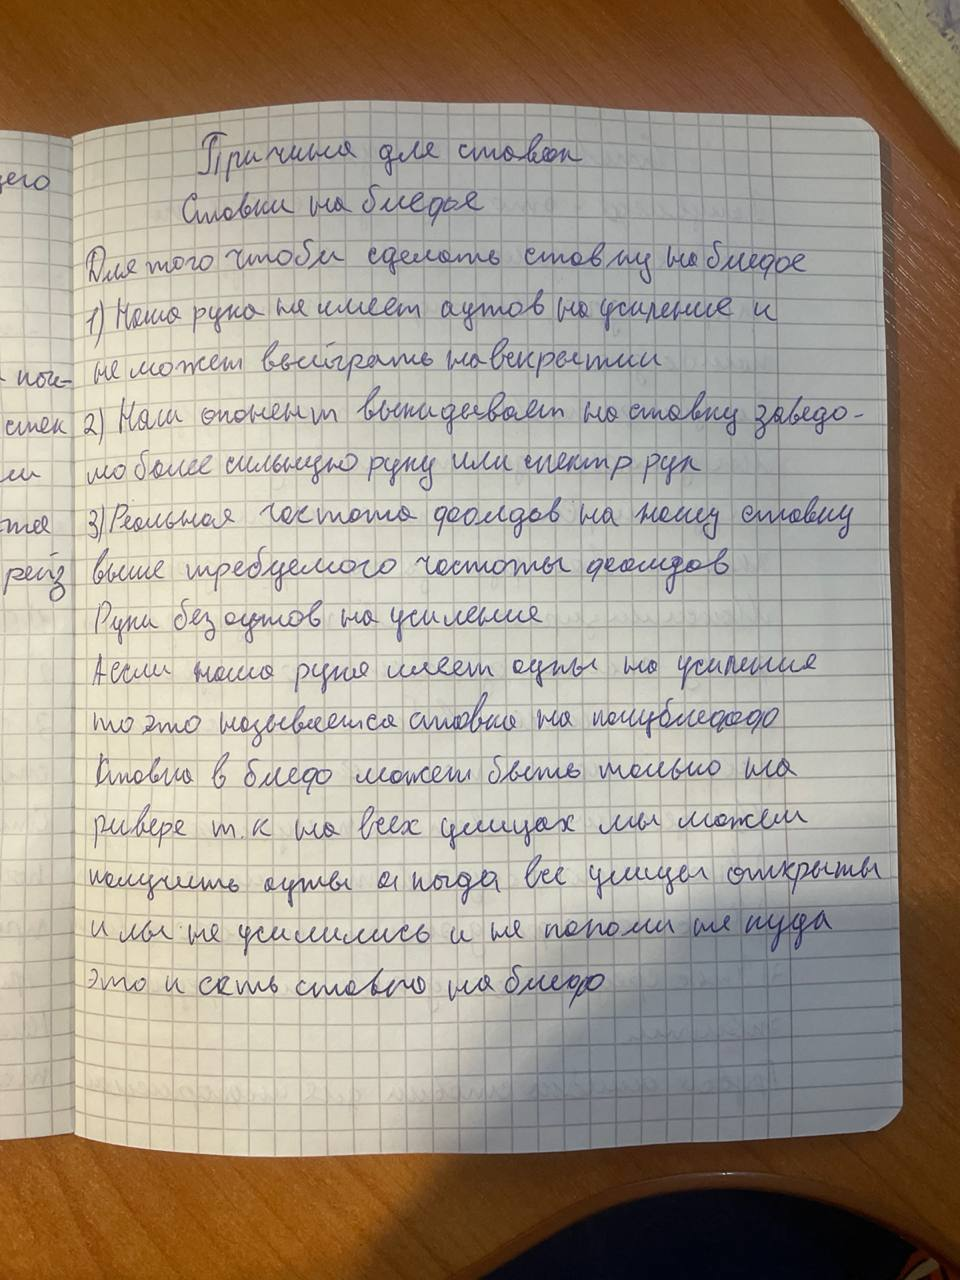 Причина для ставок
Ставки на блефе
Для того чтоби сделать ставку на блефе
1) Наша рука не имеет аутов на усиление и
не может выиграть на вскрытии
2) Наш опонент выкидывает на ставку заведо-
мо более сильную руку или спектр рук
3) Реальная частота фолдов на нашу ставку
выше требуемого частоты фолдов
Руки без аутов на усиление
А если наша рука имеет ауты на усиления
то это называется ставка на полублефе
Ставка в блеф может быть только на
ривере т.к на всех улицах мы можем
получить ауты а когда все улицы открыты
и мы не усилились и не попали не куда
это и есть ставка на блеф
его
пы-
стек
ли
тя
рейз